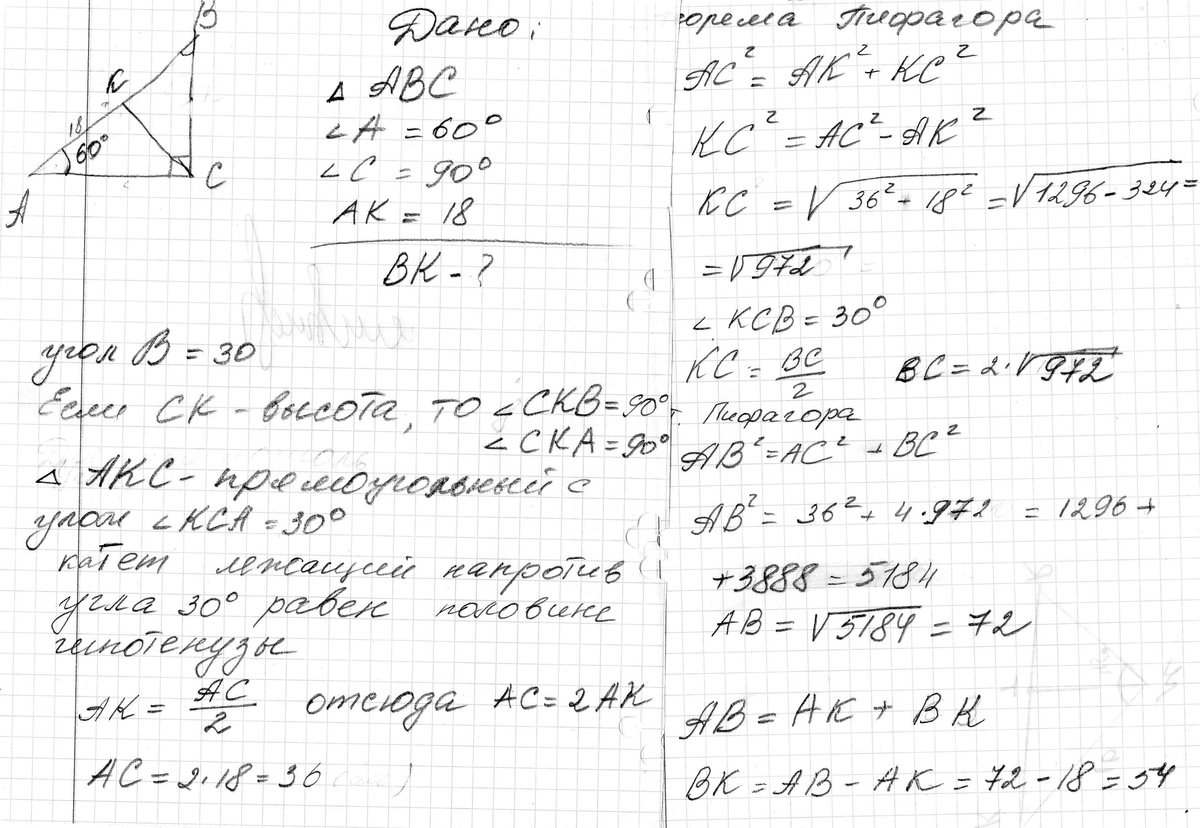 B
К
18
60°
A
C
Дано:
△ ABC
∠A = 60°
∠C = 90°
AK = 18
BK - ?
угол B = 30
Если СК - высота, то ∠CKB = 90°
∠CKA = 90°
△ AKC - прямоугольный с
углом ∠KCA = 30°
катет лежащий напротив
угла 30° равен половине
гипотенузы
AK = AC/2 отсюда AC = 2AK
AC = 2·18 = 36
орема Пифагора
AC² = AK² + KC²
KC² = AC² - AK²
KC = √36² - 18² = √1296 - 324 =
= √972
∠KCB = 30°
KC = BC/2 BC = 2·√972
т. Пифагора
AB² = AC² + BC²
AB² = 36² + 4·972 = 1296 +
+3888 = 5184
AB = √5184 = 72
AB = AK + BK
BK = AB - AK = 72 - 18 = 54